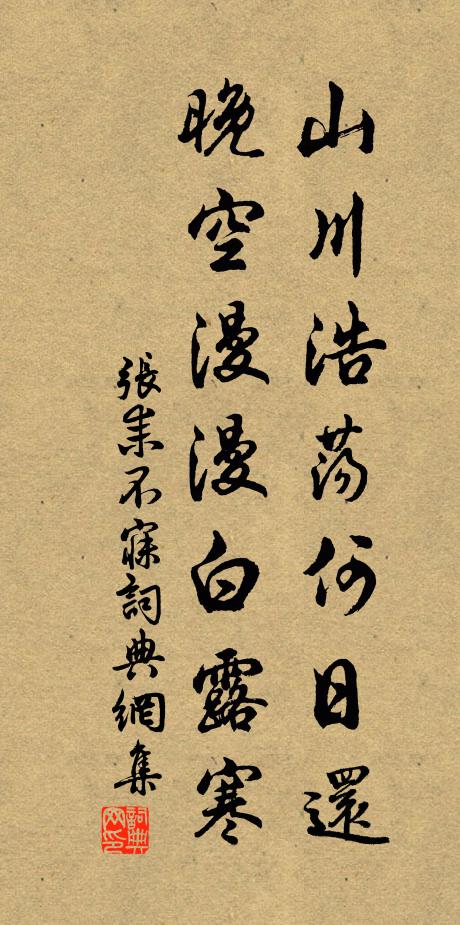 山川浩荡何日還
晚空漫漫白露寒
張耒不寐詞典網集
詞典網印